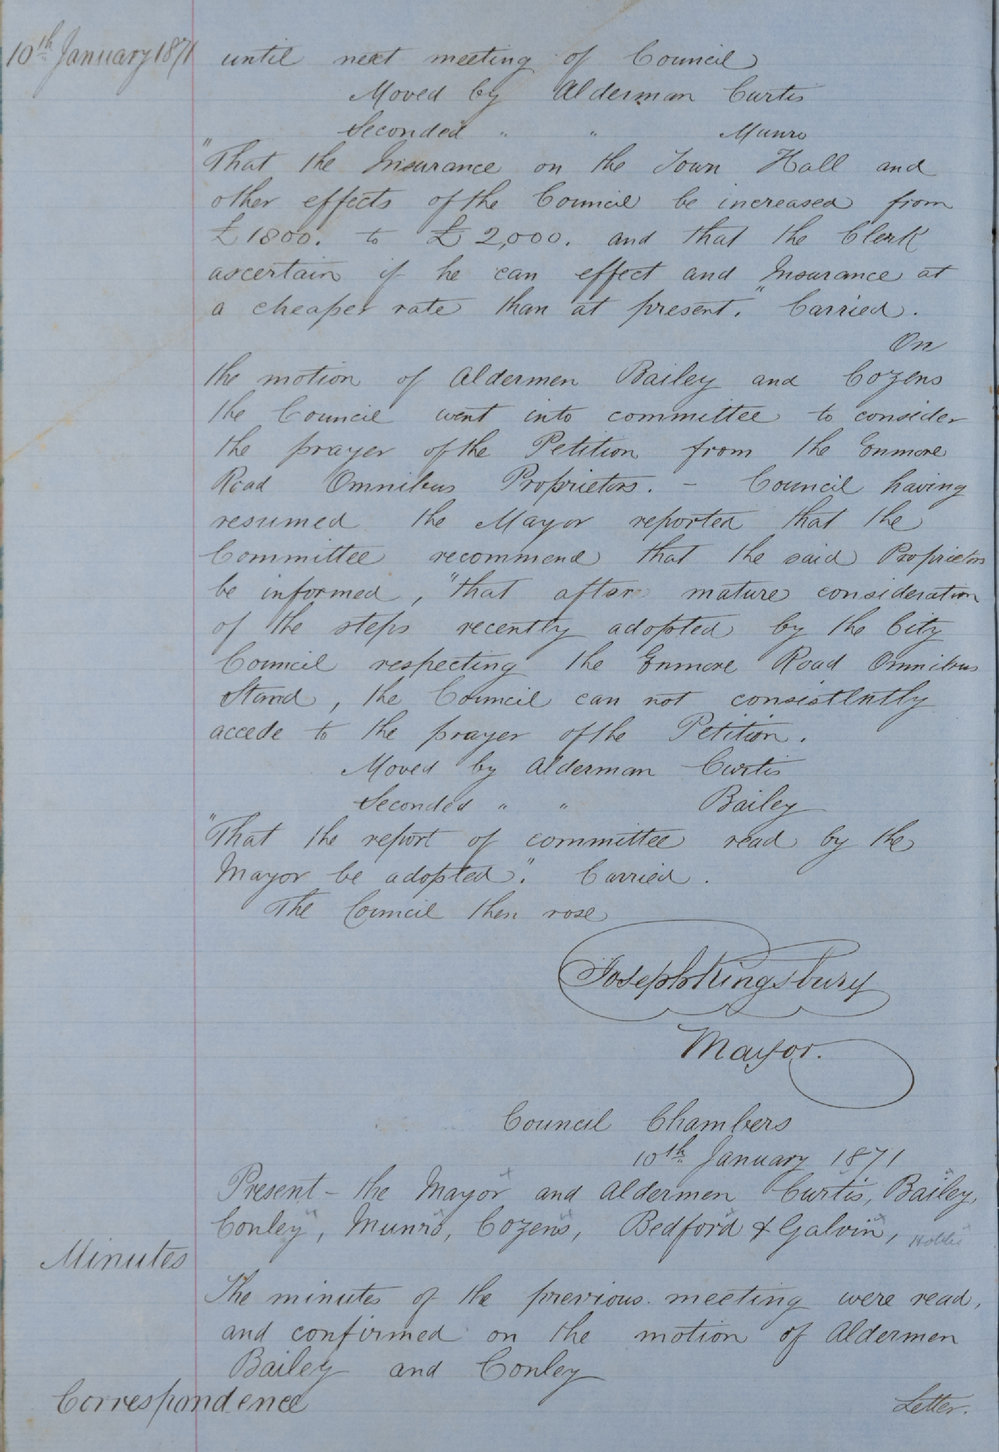 10th January 1871
until next meeting of Council
Moved by Alderman Curtis
Seconded " " Munro
"That the Insurance on the Town Hall and
other effects of the Council be increased from
£1800. to £2,000. and that the Clerk
ascertain if he can effect and Insurance at
a cheaper rate than at present." Carried.
On
the motion of Aldermen Bailey and Cozens
the Council went into committee to consider
the prayer of the Petition from the Enmore
Road Omnibus Proprietors. - Council having
resumed the Mayor reported that the
Committee recommend that the said Proprietors
be informed, "that after mature consideration
of the steps recently adopted by the City
Council respecting the Enmore Road Omnibus
Stand, the Council can not consistently
accede to the prayer of the Petition.
Moved by Alderman Curtis
Seconded " " Bailey
"That the report of committee read by the
Mayor be adopted." Carried.
The Council then rose
Joseph Kingsbury
Mayor.
Council Chambers
10th January 1871
Present - the Mayor and Aldermen Curtis, Bailey,
Conley, Munro, Cozens, Bedford & Galvin,
Minutes
The minutes of the previous meeting were read,
and confirmed on the motion of Aldermen
Bailey and Conley
Correspondence
Letter.